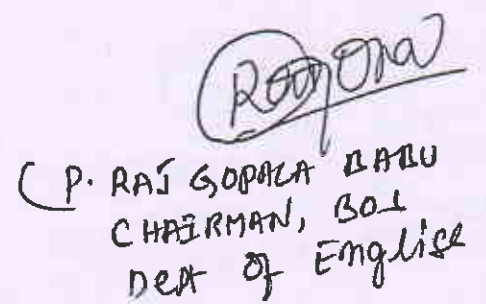 (P. RAJ GOPALA BABU
CHAIRMAN, BOS
Dept of English